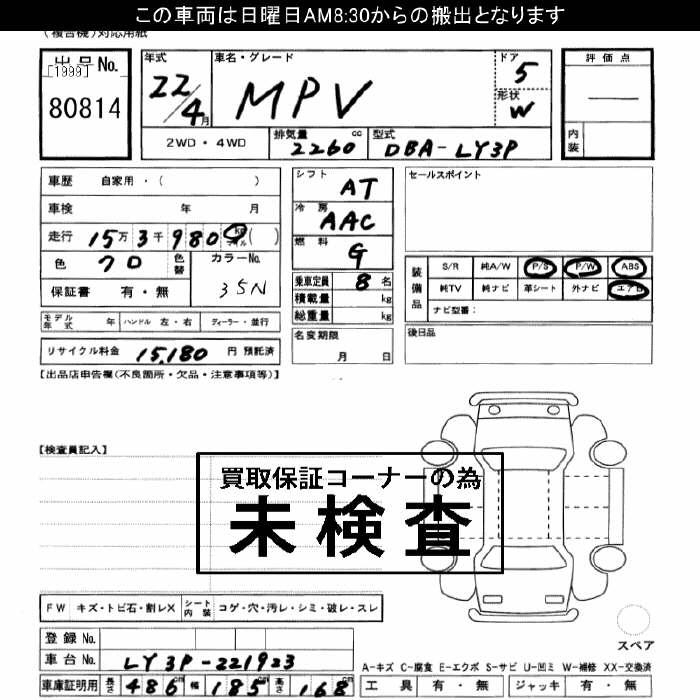 この車両は日曜日AM8:30からの搬出となります
(複合機)対応用紙
出品No.
[1999]
80814
年式 22/4月
車名・グレード
MPV
ドア 5
形状 W
評価点
―
内装
2WD・4WD
排気量 2260 cc
型式 DBA-LY3P
車歴 自家用・( )
車検 年 月
走行 15万3千980 km マイル ( )
色 クロ 色替
カラーNo. 35N
保証書 有・無
モデル年式 年 ハンドル 左・右 ディーラー・並行
リサイクル料金 15,180 円 預託済
シフト AT
冷房 AAC
燃料 G
乗車定員 8 名
積載量 kg
総重量 kg
名変期限
月 日
セールスポイント
装備品
S/R 純A/W P/S P/W ABS
純TV 純ナビ 革シート 外ナビ エアB
ナビ型番:
後日品
【出品店申告欄(不良箇所・欠品・注意事項等)】
【検査員記入】
買取保証コーナーの為
未検査
FW キズ・トビ石・割レX シート内装 コゲ・穴・汚レ・シミ・破レ・スレ
登録No.
車台No. LY3P-221923
車庫証明用 長さ 486 cm 幅 185 cm 高さ 168 cm
スペア
A-キズ C-腐食 E-エクボ S-サビ U-凹ミ W-補修 XX-交換済
工具 有・無 ジャッキ 有・無